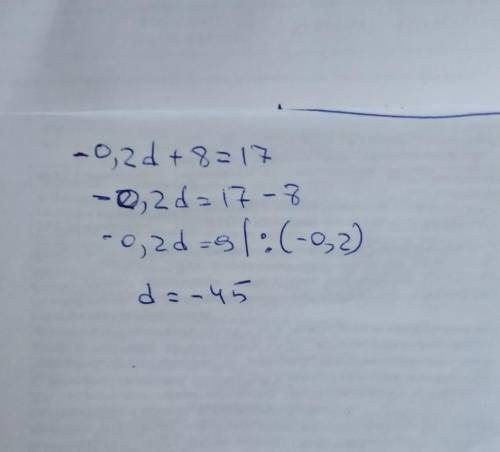 -0,2d + 8 = 17
-0,2d = 17 - 8
-0,2d = 9 | : (-0,2)
d = -45